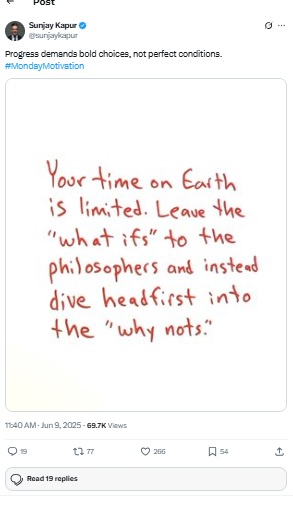 Post
Sunjay Kapur
@sunjaykapur
Progress demands bold choices, not perfect conditions.
#MondayMotivation
Your time on Earth
is limited. Leave the
"what ifs" to the
philosophers and instead
dive headfirst into
the "why nots."
11:40 AM · Jun 9, 2025 · 69.7K Views
19 77 266 54
Read 19 replies